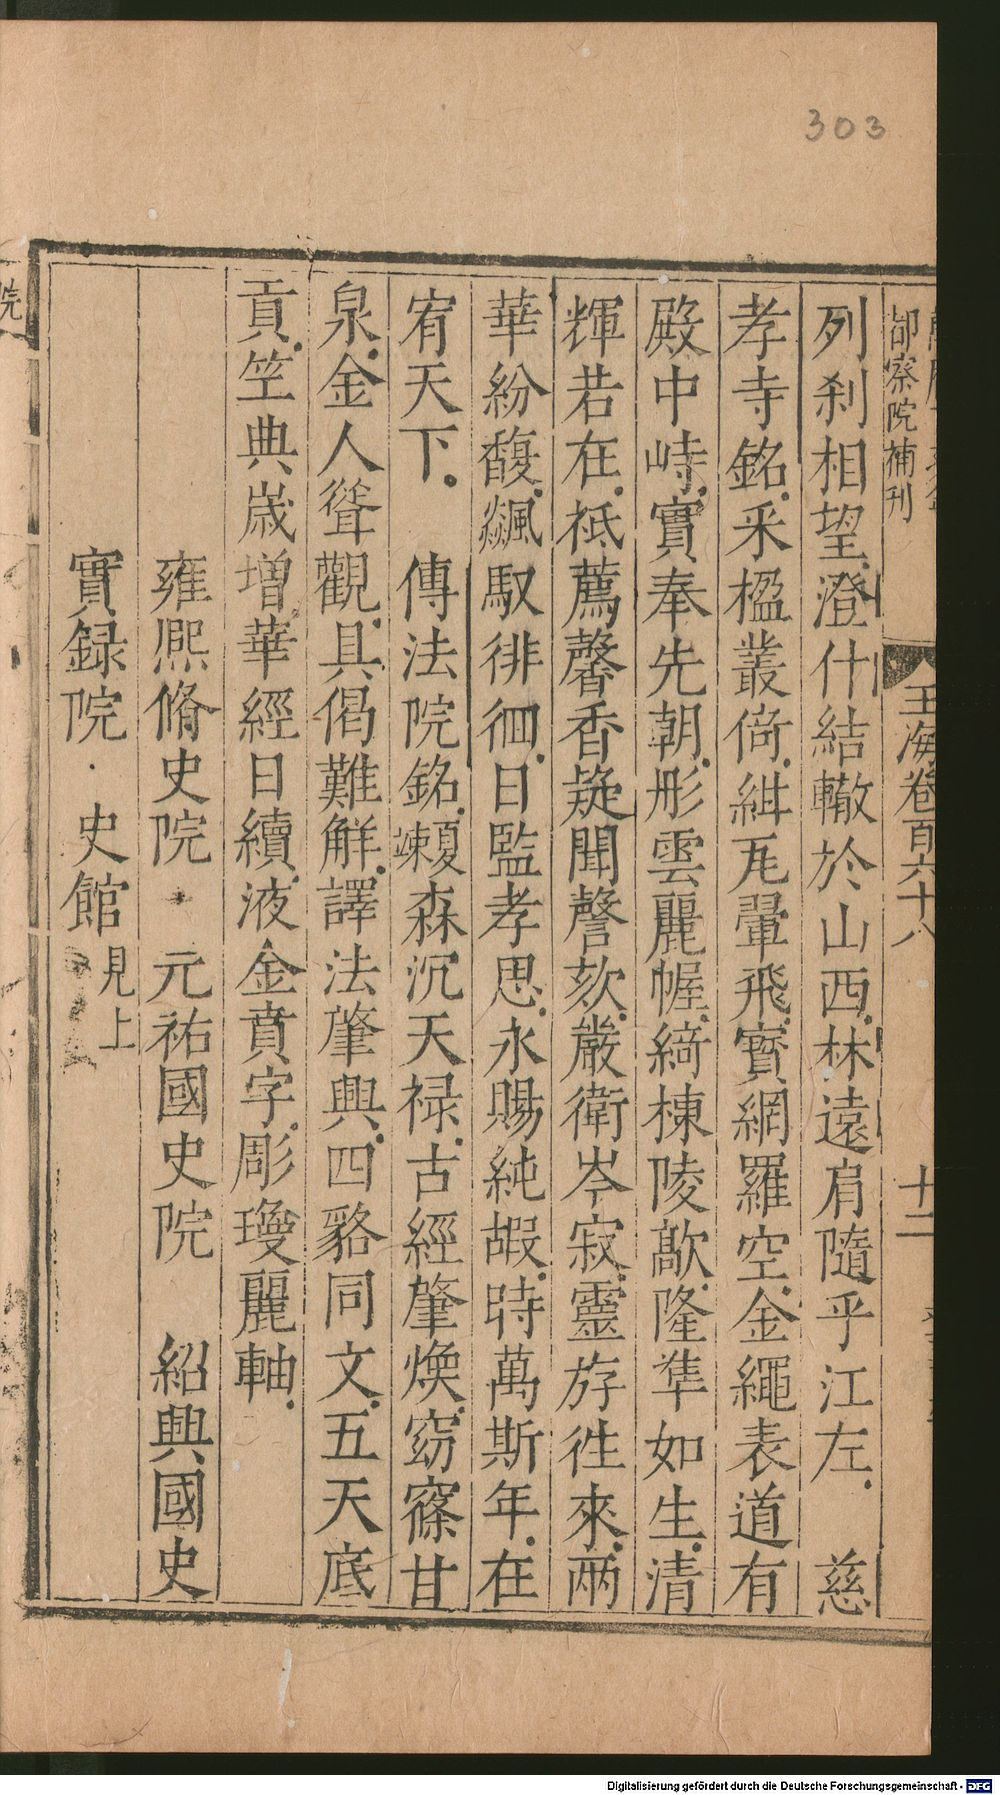 303
都察院補刊
玉海卷百六十八
十二
列刹相望澄什結轍於山西林遠肩隨乎江左 慈
孝寺銘釆楹叢倚紺瓦翬飛寶網羅空金繩表道有
殿中峙實奉先朝彤雲麗幄綺棟陵歊隆準如生清
輝若在祗薦馨香疑聞謦欬嚴衛岑寂靈斿徃來兩
華紛馥飆馭徘徊日監孝思永賜純嘏時萬斯年在
宥天下 傳法院銘森沉天禄古經肇煥窈窱甘
泉金人聳觀具偈難解譯法肇興四貉同文五天底
貢竺典歲增華經日續液金賁字彫瓊麗軸
雍熙脩史院 元祐國史院 紹興國史
實録院 史館見上
院
Digitalisierung gefördert durch die Deutsche Forschungsgemeinschaft - DFG